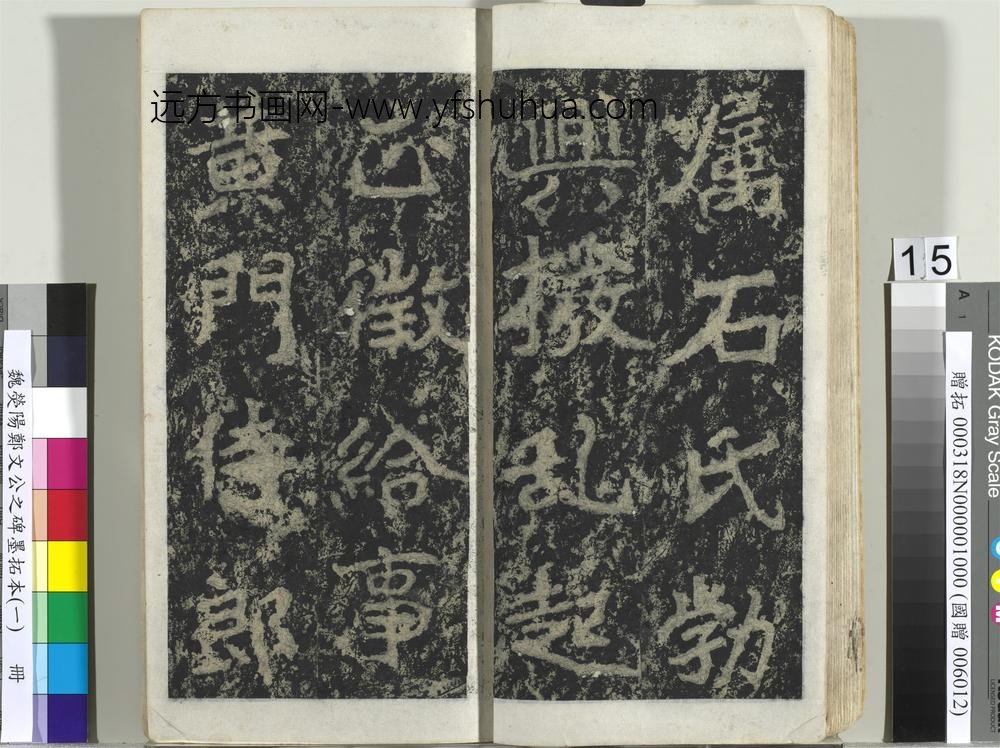 远方书画网-www.yfshuhua.com
属石氏勃
興撥乱起
正徵給事
黄門侍郎
15
魏滎陽鄭文公之碑墨拓本(一) 冊
贈拓 000318N000001000 (國贈 006012)
KODAK Gray Scale
A 1